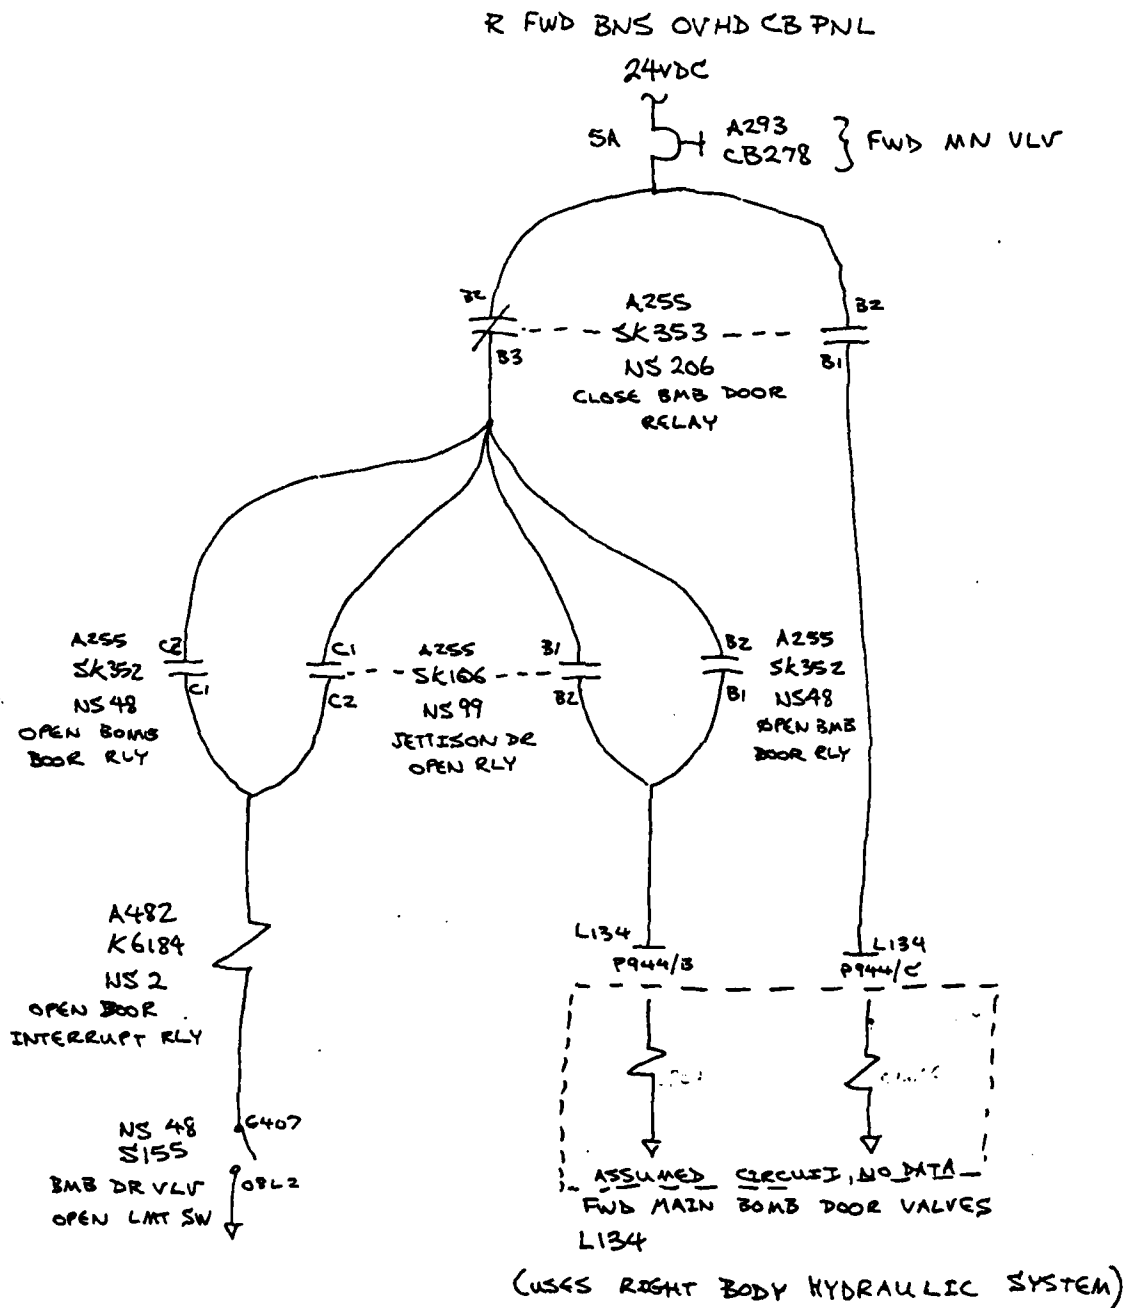 R FWD BNS OVHD CB PNL
24VDC
5A
A293
CB278
} FWD MN VLV
B2
B3
A255
SK353
NS 206
CLOSE BMB DOOR
RELAY
B2
B1
A255
SK352
NS 48
OPEN BOMB
DOOR RLY
C2
C1
C1
C2
A255
SK166
NS 99
JETTISON DR
OPEN RLY
B1
B2
B2
B1
A255
SK352
NS48
OPEN BMB
DOOR RLY
A482
K6184
NS 2
OPEN DOOR
INTERRUPT RLY
L134
P944/B
L134
P944/C
NS 48
S155
BMB DR VLV
OPEN LMT SW
6407
08L2
ASSUMED CIRCUIT, NO DATA
FWD MAIN BOMB DOOR VALVES
L134
(USES RIGHT BODY HYDRAULIC SYSTEM)